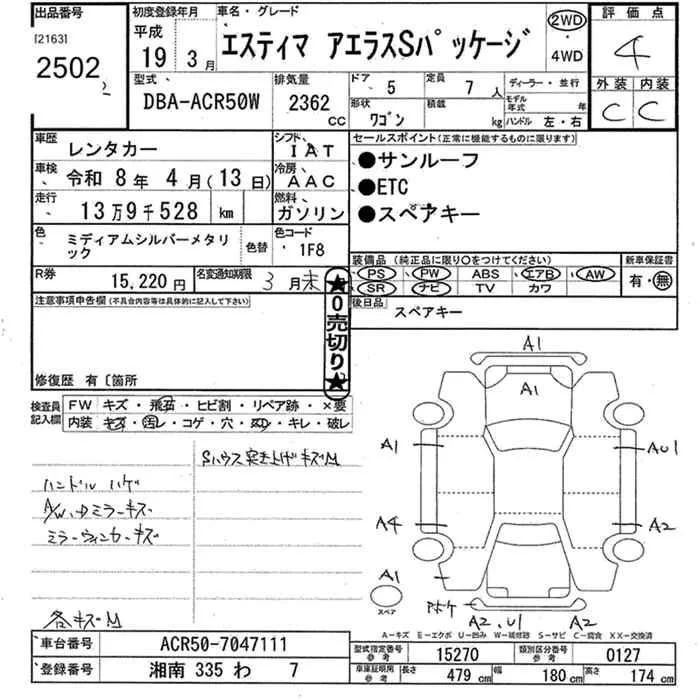 出品番号
[2163]
2502
初度登録年月
平成
19 3月
車名・グレード
エスティマ アエラスSパッケージ
2WD
・
4WD
評価点
4
外装 内装
C C
型式
DBA-ACR50W
排気量
2362 CC
ドア 5
定員 7人
ディーラー・並行
形状 ワゴン
積載 kg
モデル年式 年
ハンドル 左・右
車歴 レンタカー
シフト IAT
車検 令和 8年 4月(13日)
冷房 AAC
走行 13万9千528 km
燃料 ガソリン
色 ミディアムシルバーメタリック
色替
色コード 1F8
R券 15,220円
名変通知期限 3月末
セールスポイント(正常に機能するものに限ります)
●サンルーフ
●ETC
●スペアキー
装備品(純正品に限り○をつけてください)
新車保証書
PS PW ABS エアB AW
SR ナビ TV カワ
有・無
注意事項申告欄(不具合内容等は具体的に記入して下さい)
★0売切り★
後日品
スペアキー
修復歴 有〔箇所
検査員記入欄
FW キズ・飛石・ヒビ割・リペア跡・×要
内装 キズ・汚レ・コゲ・穴・スレ・キレ・破レ
Sハウス突き上げキズM
ハンドルハゲ
ミラーウィンカーキズ
各キズM
A1
A1
A1
AU1
A4
A2
A1
スペア
A2, U1
A2
A－キズ E－エクボ U－凹み W－補修跡 S－サビ C－腐食 XX－交換済
車台番号 ACR50-7047111
登録番号 湘南 335 わ 7
型式指定番号 参考 15270
類別区分番号 参考 0127
車庫証明用 参考 長さ 479 cm 幅 180 cm 高さ 174 cm